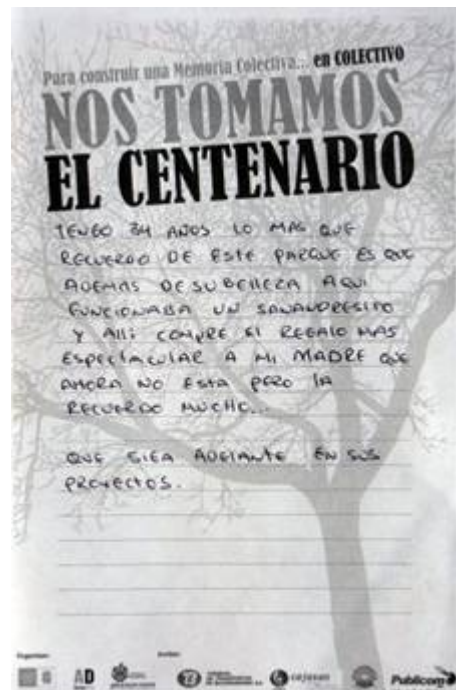 Para construir una Memoria Colectiva... en COLECTIVO
NOS TOMAMOS
EL CENTENARIO
TENGO 34 AÑOS LO MAS QUE
RECUERDO DE ESTE PARQUE ES QUE
ADEMAS DE SU BELLEZA AQUI
FUNCIONABA UN SANANDRESITO
Y ALLI COMPRE EL REGALO MAS
ESPECTACULAR A MI MADRE QUE
AHORA NO ESTA PERO LA
RECUERDO MUCHO...
QUE SIGA ADELANTE EN SUS
PROYECTOS.
AD
cajasan
Publicom